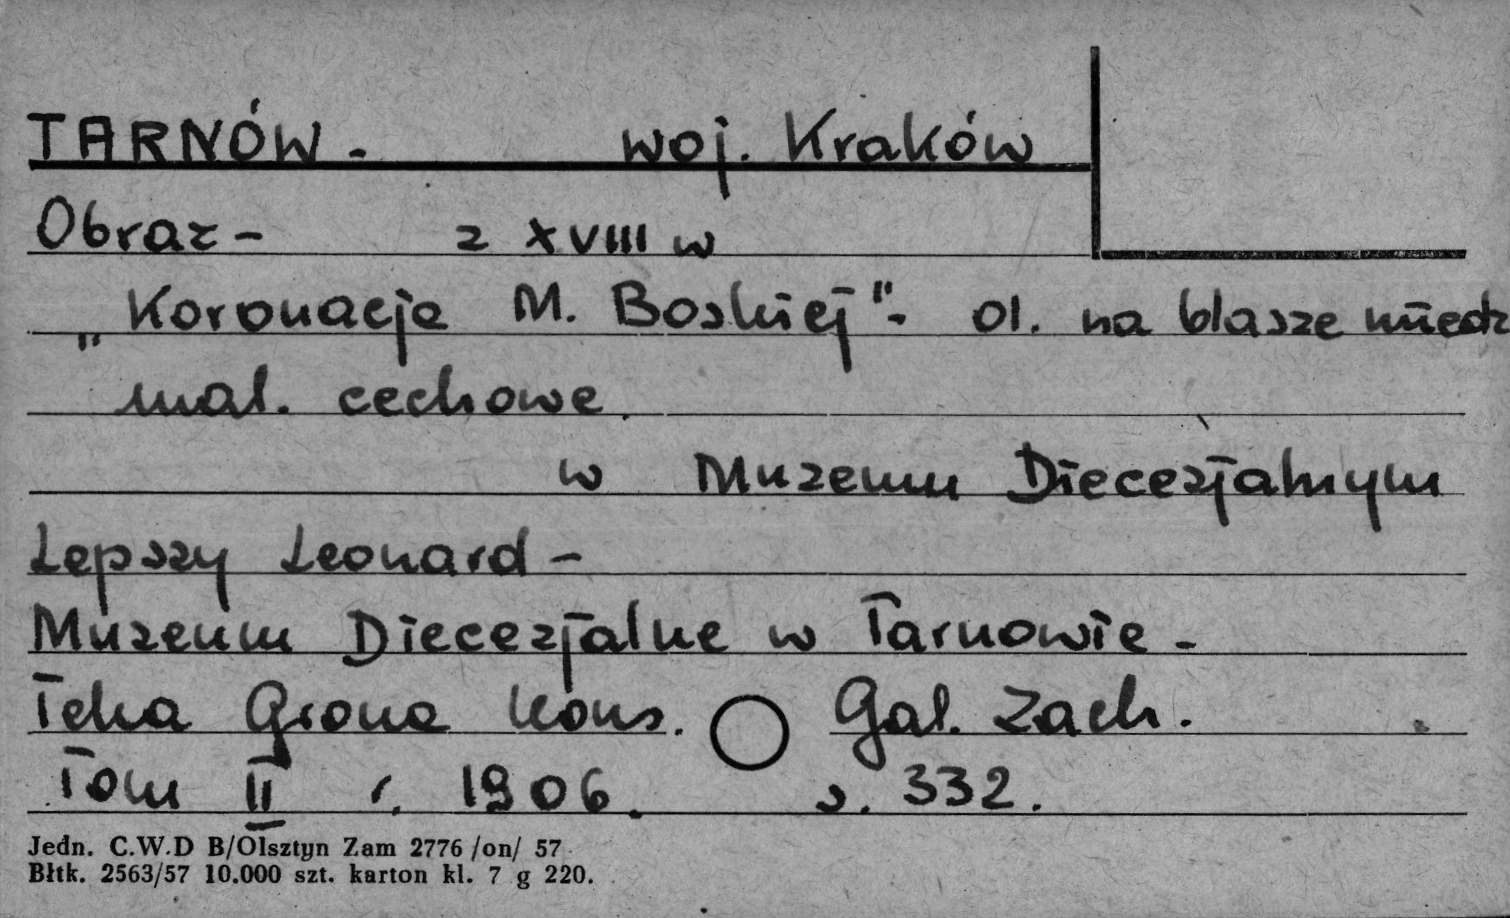 TARNÓW - woj. Kraków
Obraz - z XVIII w
„Koronacja M. Boskiej" - ol. na blasze miedz
mal. cechowe.
w Muzeum Diecezjalnym
Lepszy Leonard -
Muzeum Diecezjalne w Tarnowie -
Teka Grona Kons. Gal. Zach.
Tom II r. 1906. s. 332.
Jedn. C.W.D B/Olsztyn Zam 2776 /on/ 57
Błtk. 2563/57 10.000 szt. karton kl. 7 g 220.